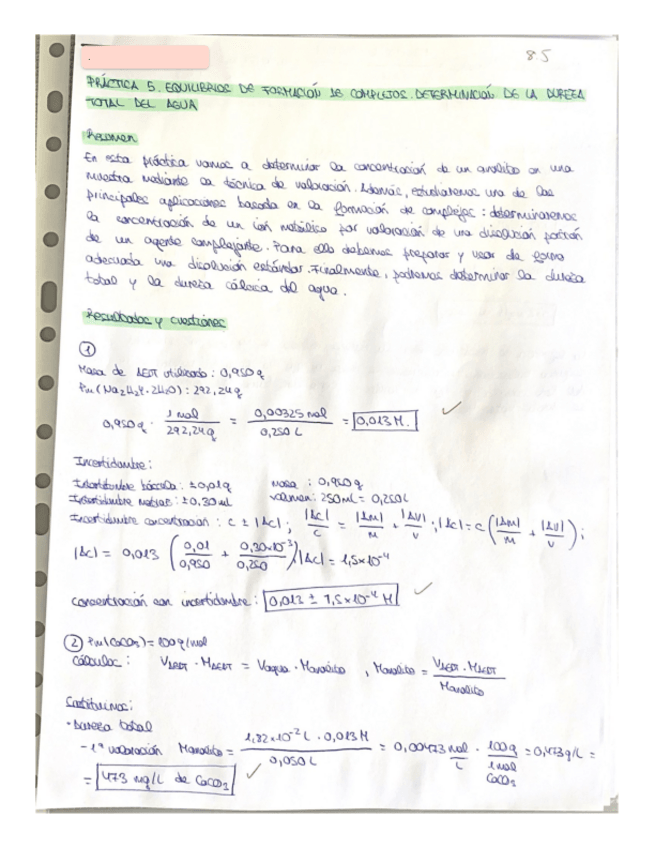 8.5
PRÁCTICA 5. EQUILIBRIOS DE FORMACIÓN DE COMPLEJOS. DETERMINACIÓN DE LA DUREZA
TOTAL DEL AGUA
Resumen
En esta práctica vamos a determinar la concentración de un analito en una
muestra mediante la técnica de valoración. Además, estudiaremos una de las
principales aplicaciones basada en la formación de complejos: determinaremos
la concentración de un ion metálico por valoración de una disolución patrón
de un agente complejante. Para ello debemos preparar y usar de forma
adecuada una disolución estándar. Finalmente, podremos determinar la dureza
total y la dureza cálcica del agua.
Resultados y cuestiones
1
Masa de AEDT utilizado: 0,950g
Pm(Na2H2Y·2H2O): 292,24g
0,950g · 1 mol / 292,24g = 0,00325 mol / 0,250 L = 0,013 M. ✓
Incertidumbre:
Incertidumbre báscula: ±0,01g masa: 0,950g
Incertidumbre matraz: ±0.30ml volumen: 250mL = 0,250L
Incertidumbre concentración: c ± |Δc|; |Δc|/c = |Δm|/m + |Δv|/v; |Δc| = c (|Δm|/m + |Δv|/v);
|Δc| = 0,013 (0,01/0,950 + 0,30·10⁻³/0,250) |Δc| = 1,5×10⁻⁴
Concentración con incertidumbre: 0,013 ± 1,5×10⁻⁴ M ✓
2 Pm(CaCO3) = 100g/mol
Cálculos: VAEDT · MAEDT = Vagua · Manalito, Manalito = VAEDT · MAEDT / Manalito
Sustituimos:
· Dureza total
- 1ª valoración Manalito = 1,82×10⁻² L · 0,013M / 0,050 L = 0,00473 mol/L · 100g / 1 mol CaCO3 = 0,473g/L =
= 473 mg/L de CaCO3 ✓